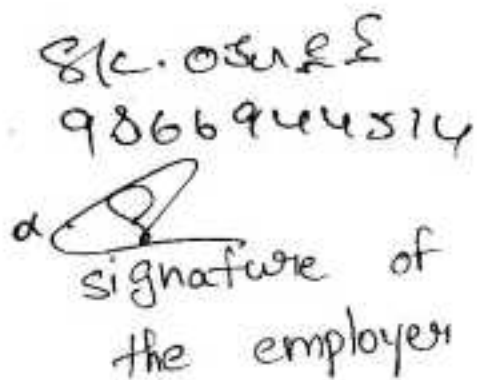 9866944514
signature of
the employer